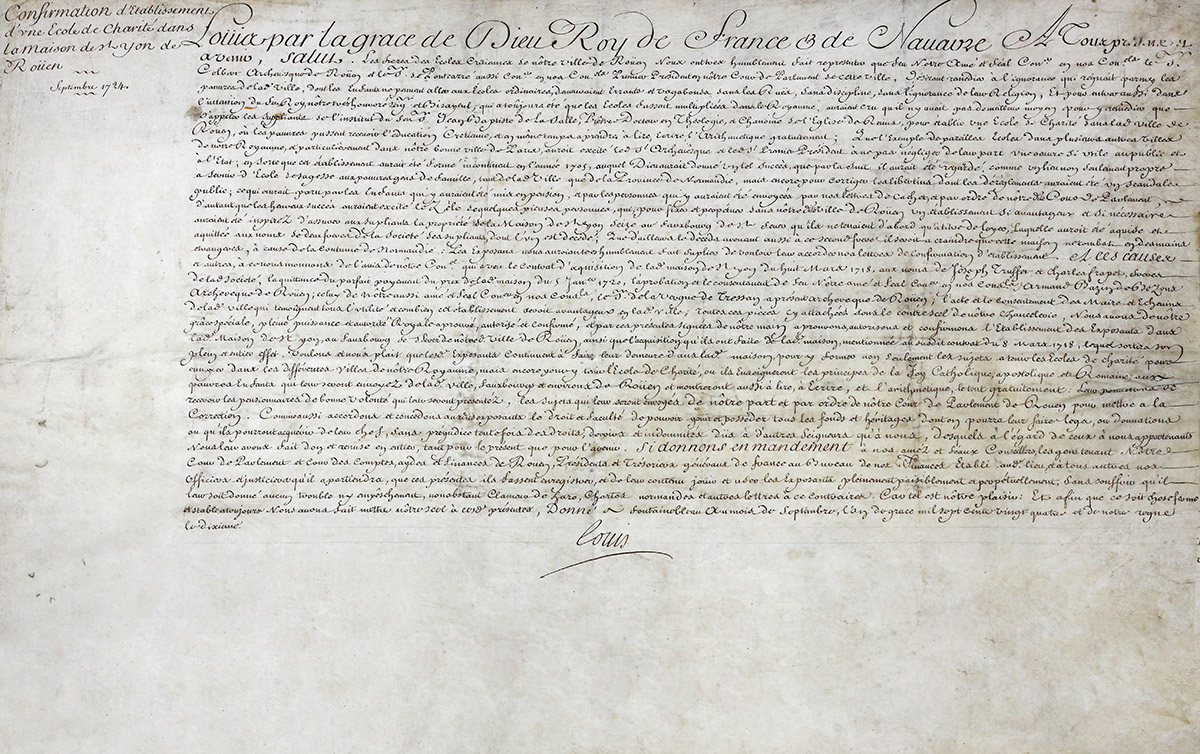 Confirmation d'Etablissement
d'vne Ecole de Charité dans
la Maison de St Yon de
Roüen
Septembre 1724.
Loüis par la grace de Dieu Roy de France & de Nauarre A Tous presens et
avenir, Salut. Les freres des Ecoles Cretiennes de nôtre ville de Roüen Nous ont tres humblement fait representer que feu Nôtre Amé et feal Conser en nos Conseils le Sr
Colbert Archevesque de Roüen, et le Sr de Pontcarré aussi Conser en nos Conseils Premier President en nôtre Cour de Parlement de cette ville, Desirant remedier à l'ignorance qui regnait parmy les
pauvres de lad. ville, dont les Enfants ne pouvant aller aux Ecoles ordinaires, demeuraient Errants et vagabonds dans les Rües, sans discipline, dans l'ignorance de leur Religion, Et pour entrer aussi dans
l'intention du feu Roy nôtre tres honnoré Seigr et Bisayeul, qui a toujours été que les Ecoles fussent multipliées dans le Royaume, auraient cru qu'il n'y avait pas de meilleur moyen pour y reüssir que
d'appeler les Suppliants de l'institut du feu Sr Jean Baptiste de la Salle, Prêtre Docteur en Theologie, et Chanoine de l'Eglise de Reims, pour établir vne Ecole de Charité dans lad. ville de
Roüen, ou les pauvres pussent recevoir l'Education Cretienne, et en même temps aprendre à lire, écrire et l'Arithmetique gratuitement; Que l'Exemple de pareilles Ecoles dans plusieurs autres villes
de nôtre Royaume, et particulierement dans nôtre bonne ville de Paris, aurait excité led. Sr Archevesque et led. Sr Premier President à ne pas negliger de leur part vne oeuvre si vtile au public et
à l'Etat; en sorte que cet établissement aurait été formé incontinent en l'année 1705, auquel Dieu aurait donné vn tel succés, que par la suite il aurait été regardé, comme vn lieu non seulement propre
à servir d'Ecole de sagesse aux pauvres gens de famille, tant de lad. ville que de la Province de Normandie, mais encore pour corriger les libertins, dont les dereglements auraient été vn scandale
public; ce qui aurait paru par les Enfants qui y auraient été mis en pension, et par les personnes qui y auraient été envoyées par nos lettres de Cachet, et par ordre de nôtre Cour de Parlement;
d'autant que les heureux succés auraient excité le Zéle de quelques pieuses personnes, qui, pour fixer et perpetuer dans nôtre ditte ville de Roüen vn établissement si avantageux et si necessaire
auraient été inspirez d'assurer aux supliants la propriété de la Maison de St Yon sizé au fauxbourg de St Sever qu'ils ne tenaient d'abord qu'a titre de loyer, laquelle auroit été aquise et
aquittée aux noms de deux freres de la Societé des supliants, dont l'vn est decedé; Que d'ailleurs le décéds avenant aussi à ce second frere il seroit a craindre que cette maison ne tombat en des mains
etrangeres, à cause de la Coutume de Normandie. Les Exposants nous auraient tres humblement fait suplier de vouloir leur accorder nos lettres de Confirmation d'établissement. A Ces Causes
et autres, à ce nous mouvans de l'avis de notre Conseil qui a veu le Contrat d'aquisition de lad. maison de St Yon du huit Mars 1718, aux noms de Joseph Truffet et Charles frapet, freres
de lad. Societé, la quittance du parfait payement du prix de lad. maison du 5 Janer 1720, l'aprobation et le consentement de feu Nôtre Amé et feal Conser en nos Conseils Armand Bazin de Bezons
Archevesque de Roüen; celuy de Nôtre aussi amé et feal Conser en nos Conseils, le Sr de la vergne de Tressan à present archevesque de Roüen; l'acte et le consentement des Maire et Echevins
de lad. ville qui temoignent tous l'vtilité et combien cet établissement seroit avantageux en lad. ville; Toutes ces pieces cy attachées sous le contre scel de nôtre Chancelerie, Nous avons de nôtre
grace speciale, pleine puissance et autorité Royale aprouvé, autorisé et confirmé, et par ces presentes signées de nôtre main aprouvons, autorisons et confirmons l'Etablissement des Exposants dans
lad. Maison de St Yon, au fauxbourg de St Sever de nôtre d. ville de Roüen, ainsi que l'aquisition qu'ils ont faite de lad. maison, mentionnée au susdit contrat du 8 Mars 1718, lequel sortira son
plein et entier effet. Voulons et nous plait que lesd. Exposants Continuent à faire leur demeure dans lad. maison, pour y former non seulement les sujets à tenir les Ecoles de charité pour
envoyer dans les differentes villes de nôtre Royaume, mais encore pour y tenir l'Ecole de Charité, ou ils Enseigneront les principes de la foy Catholique, apostolique et Romaine, aux
pauvres Enfants qui leur seront envoyez de lad. ville, fauxbourgs et environs de Roüen et montreront aussi à lire, à Ecrire, et l'arithmetique, le tout gratuitement; Leur permettons de
recevoir les pensionnaires de bonne volonté qui leur seront presentez, les sujets qui leur seront envoyez de nôtre part et par ordre de nôtre Cour de Parlement de Roüen pour mettre à la
Correction. Comme aussi accordons et concedons aux dits exposants le droit et faculté de pouvoir joüir et posseder tous les fonds et héritages dont on pourra leur faire legs, ou donnations
ou qu'ils pourront acquerir de leur chef, sans prejudice toutefois des droits, devoirs et indemnitez dûs à d'autres Seigneurs qu'à nous, desquels à l'égard de ceux à nous appartenants
Nous leur avons fait don et remise en entier, tant pour le present que pour l'avenir. Si donnons en mandement à nos amez et feaux Conseillers les gens tenant Nôtre
Cour de Parlement et Cour des Comptes, aydes et finances de Roüen, Presidents et Tresoriers généraux de france au bureau de nos finances Etabli aud. lieu, et à tous autres nos
Officiers et justiciers qu'il apartiendra, que ces presentes ils fassent enregistrer, et de leur contenu joüir et vser les Exposants pleinement paisiblement et perpetuellement, Sans souffrir qu'il
leur soit donné aucun trouble ny empéchement, nonobstant Clameur de Haro, Chartes normandes et autres lettres à ce contraires. Car tel est nôtre plaisir: Et afin que ce soit chose ferme
et stable a toujours Nous avons fait mettre nôtre scel à cesd. presentes, Donné a fontainebleau au mois de Septembre, l'an de grace mil sept cents vingt quatre et de notre regne
le dixieme
Louis